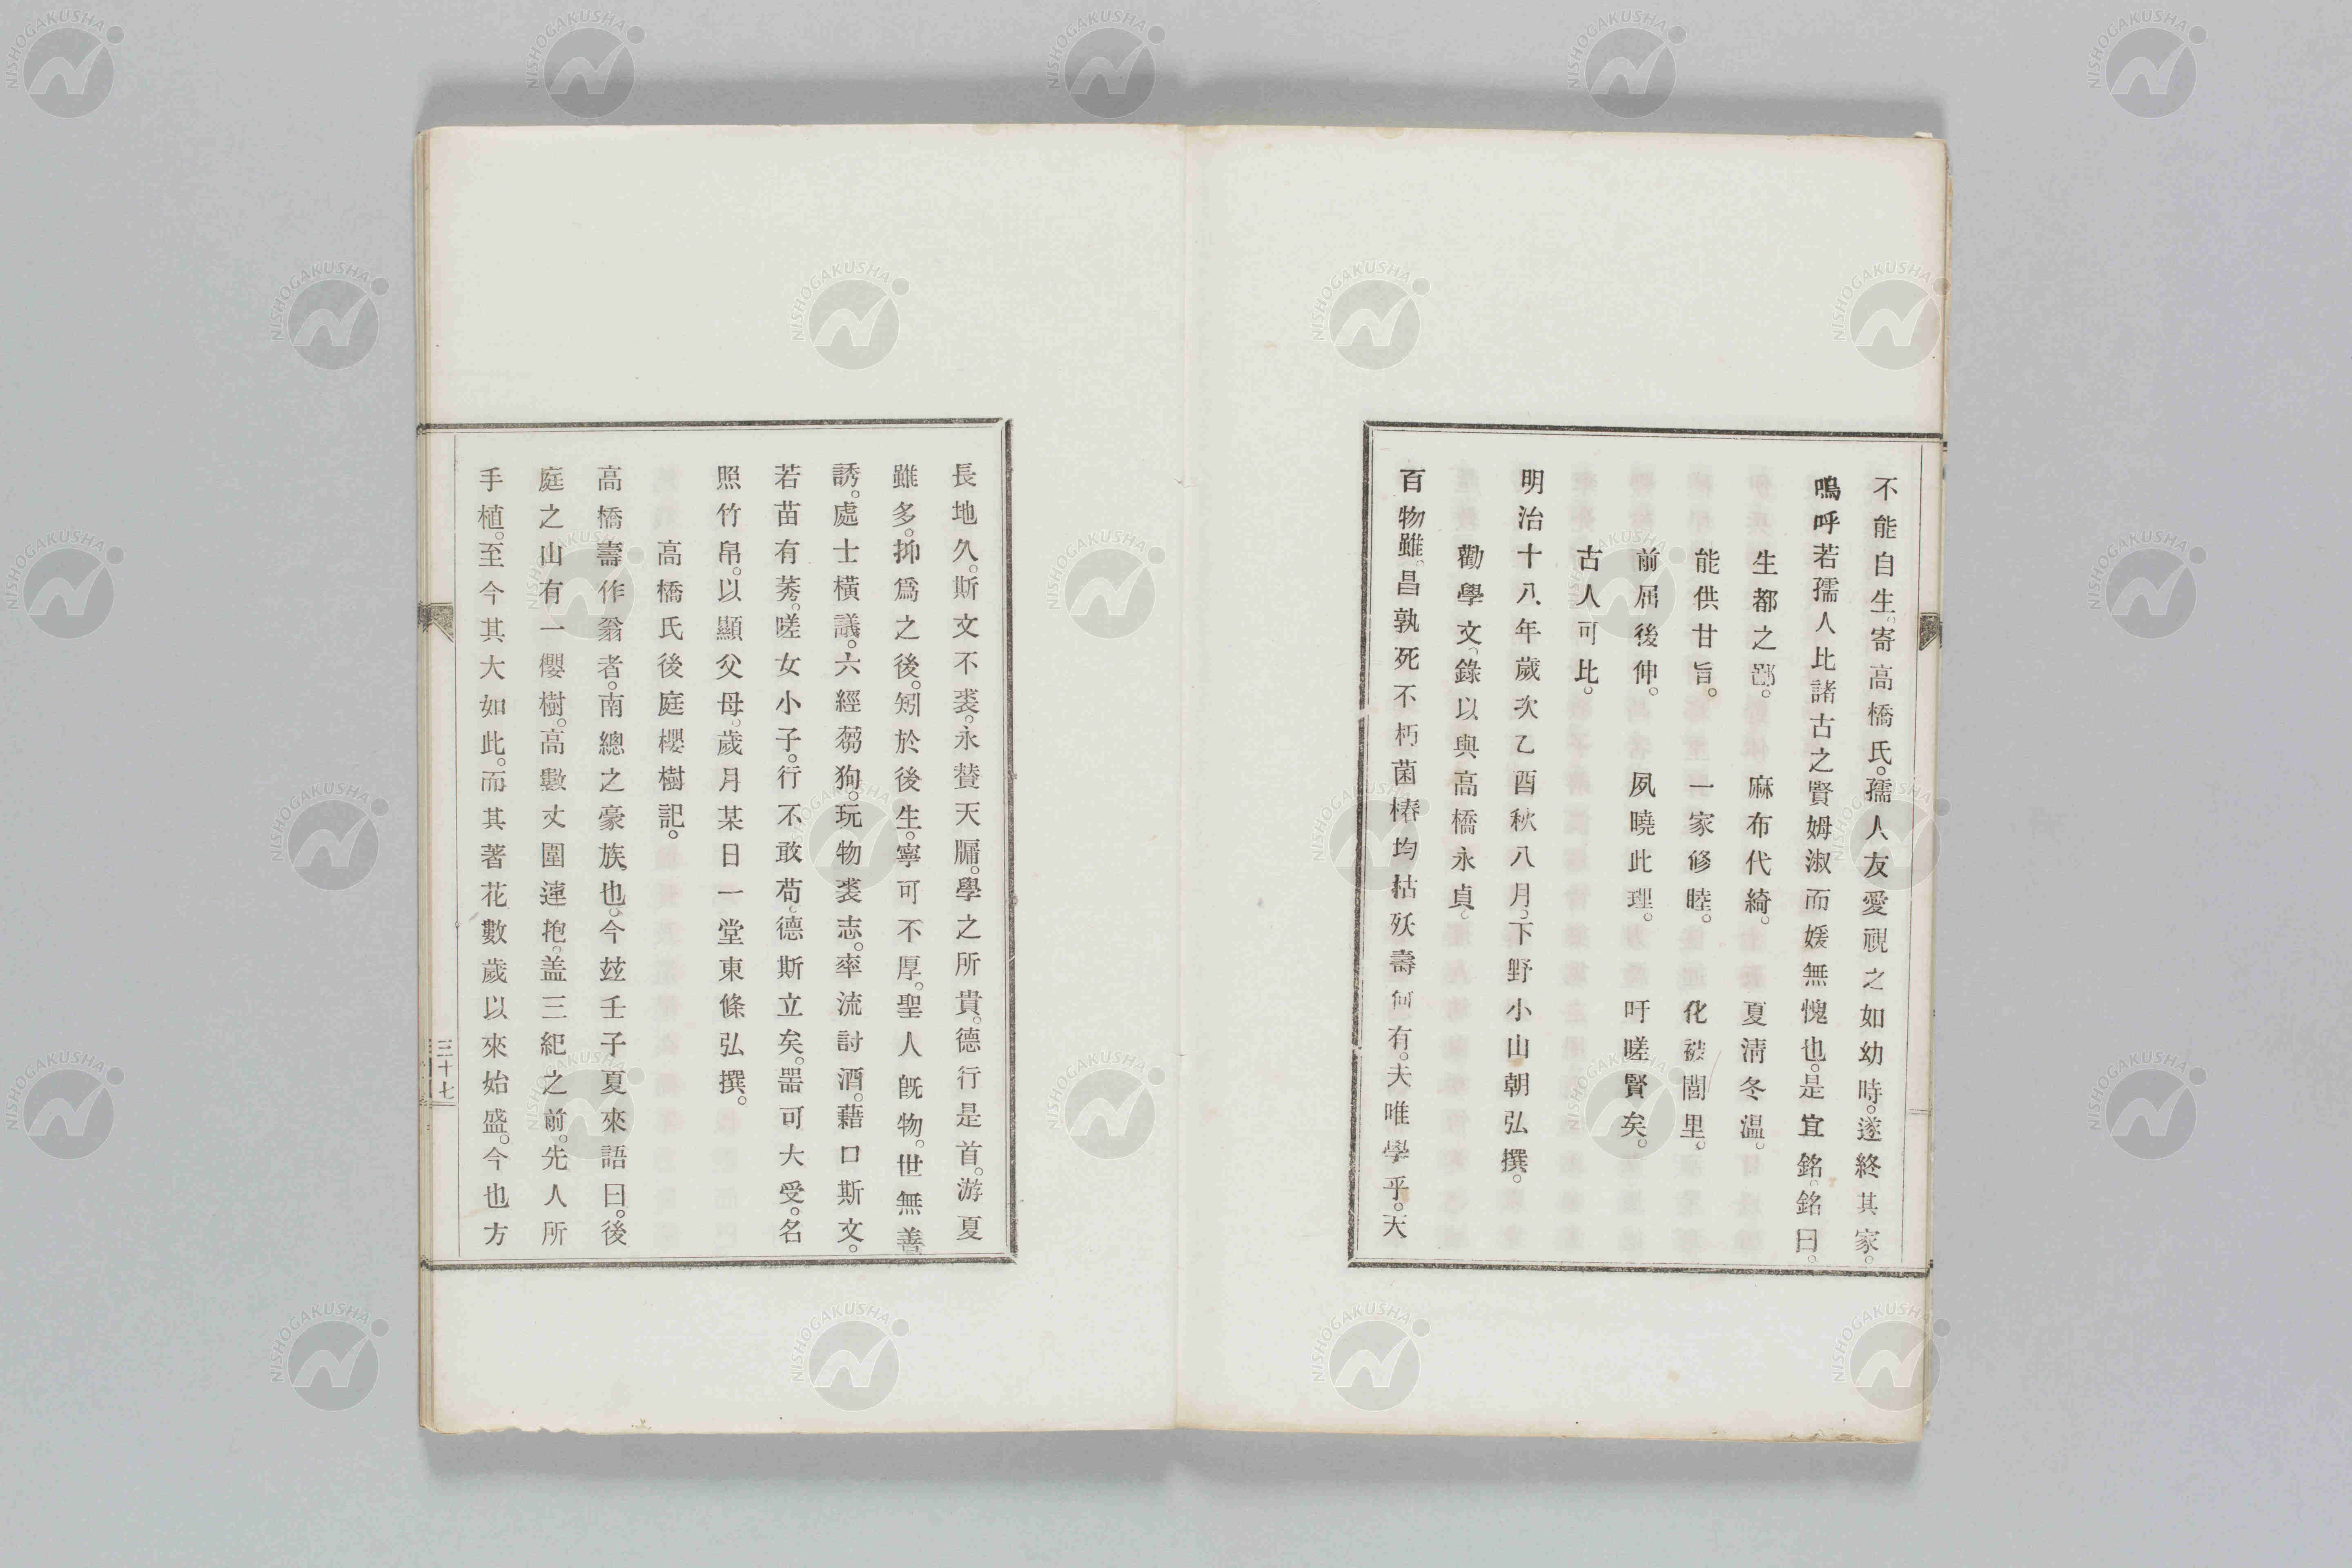 不能自生。寄高橋氏。孺人友愛視之如幼時。遂終其家。
嗚呼若孺人比諸古之賢姆淑而媛無愧也。是宜銘。銘曰。
生都之鄙。 麻布代綺。 夏淸冬温。
能供甘旨。 一家修睦。 化被閭里。
前屈後伸。 夙曉此理。 吁嗟賢矣。
古人可比。
明治十八年歲次乙酉秋八月。下野小山朝弘撰。
勸學文、錄以與高橋永貞。
百物雖昌孰死不朽菌椿均枯殀壽何有。夫唯學乎。天
長地久。斯文不裘。永賛天牖。學之所貴。德行是首。游夏
雖多。抑爲之後。矧於後生。寧可不厚。聖人旣物。世無善
誘。處士橫議。六經芻狗。玩物裘志。率流討酒。藉口斯文。
若苗有莠。嗟女小子。行不敢苟。德斯立矣。噐可大受。名
照竹帛。以顯父母。歲月某日一堂東條弘撰。
高橋氏後庭櫻樹記。
高橋壽作翁者。南總之豪族也。今玆壬子夏來語曰。後
庭之山有一櫻樹。高數丈圍連抱。盖三紀之前。先人所
手植。至今其大如此。而其著花數歲以來始盛。今也方
三十七
NISHOGAKUSHA